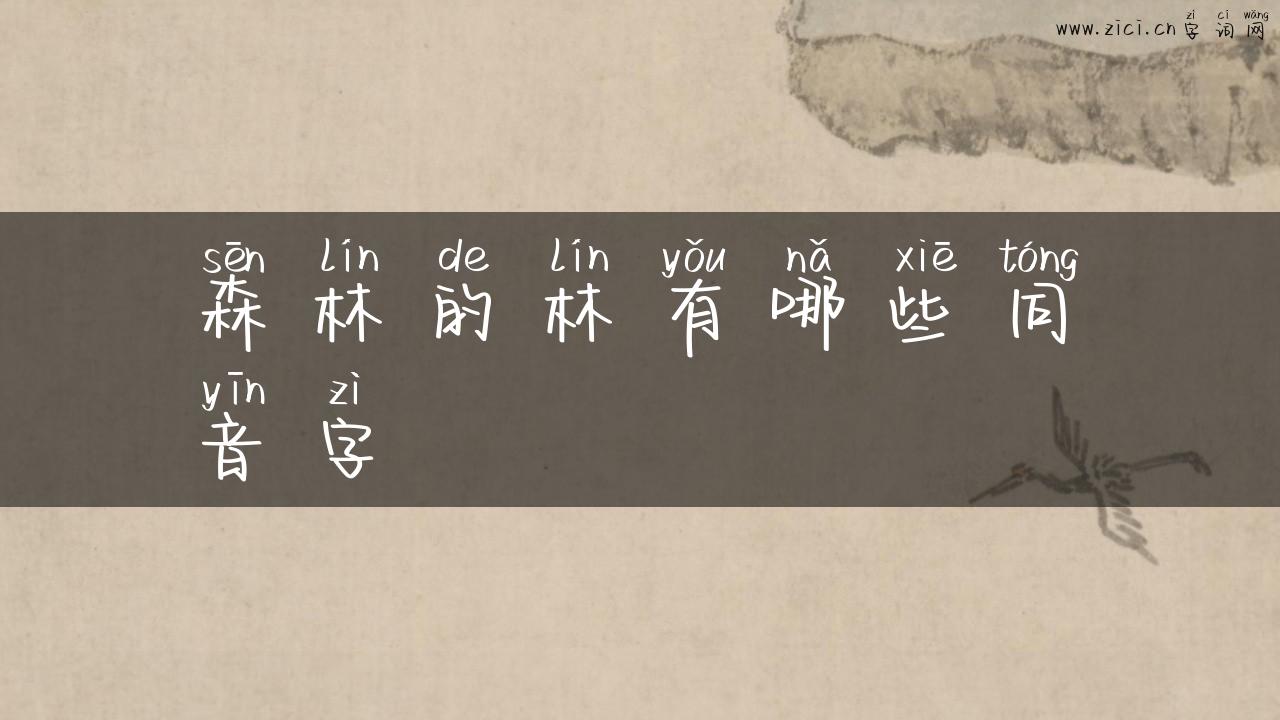 zì cí wǎng
www.zici.cn 字 词 网
sēn lín de lín yǒu nǎ xiē tóng
森 林 的 林 有 哪 些 同
yīn zì
音 字